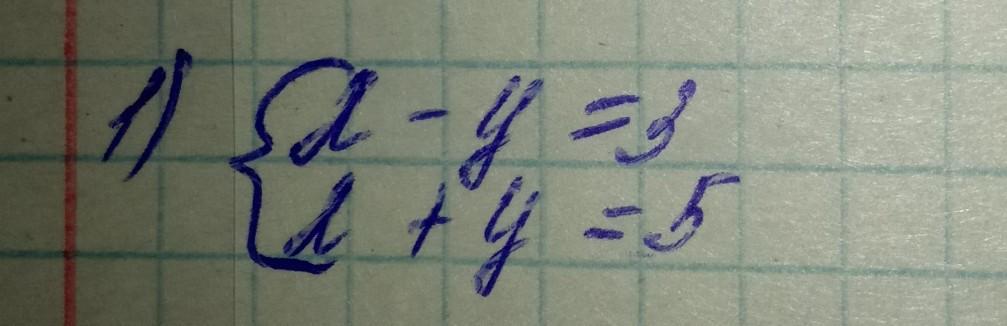 1) { x - y = 3
x + y = 5